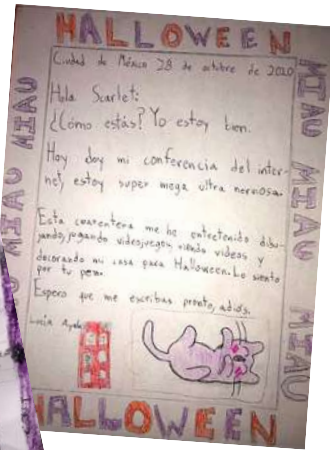 HALLOWEEN
Ciudad de México 28 de octubre de 2020
Hola Scarlet:
¿Cómo estás? Yo estoy bien.
Hoy doy mi conferencia del inter-
net, estoy super mega ultra nerviosa.
Esta cuarentena me he entretenido dibu-
jando, jugando videojuegos, viendo videos y
decorando mi casa para Halloween. Lo siento
por tu
Espero que me escribas pronto, adiós.
Lucía Ayala
MIAU MIAU MIAU
MIAU MIAU MIAU
HALLOWEEN